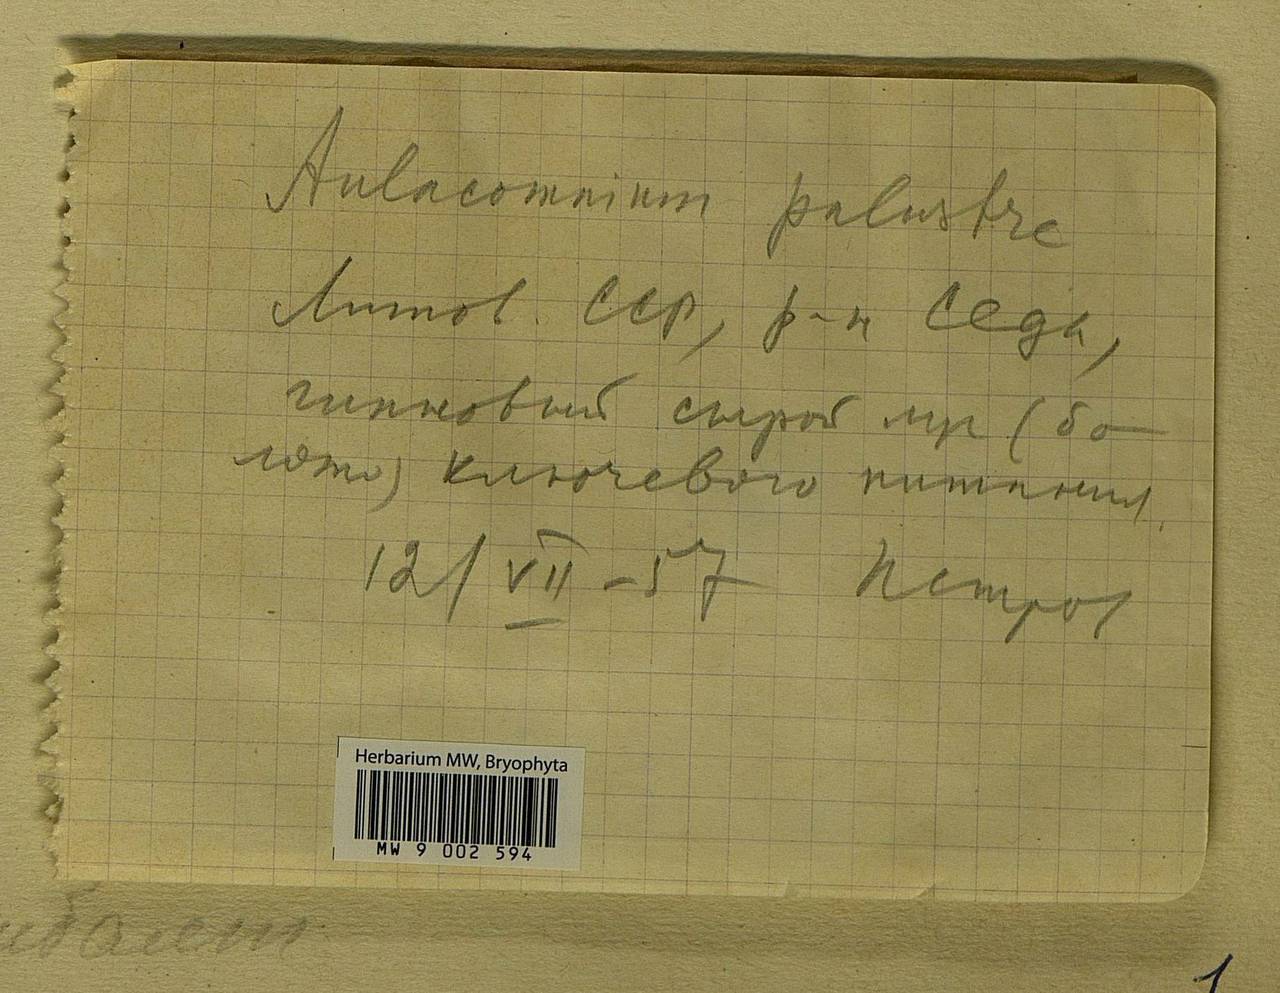 Aulacomnium palustre
Литов. ССР, р-н Седа,
гипновый сырой луг (бо-
лото) ключевого питания.
12/VII-57 Петров
Herbarium MW, Bryophyta
MW 9 002 594
1